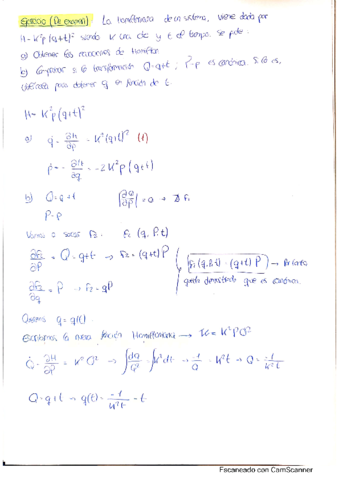 Ejercicio (De examen) La hamiltoniana de un sistema, viene dada por
H = K²p(q+t)² siendo K una cte y t el tiempo. Se pide:
a) Obtener las ecuaciones de Hamilton
b) Comprobar si la transformación Q = q+t ; P = p es canónica. Si lo es,
utilizarla para obtener q en función de t.
H = K²p(q+t)²
a) q̇ = ∂H/∂p = K²(q+t)² (1)
ṗ = -∂H/∂q = -2K²p(q+t)
b) Q = q+t
P = p
F₂(q,P,t)
∂F₂/∂P = Q = q+t → F₂ = (q+t)P
F₂(q,P,t) = (q+t)P
∂F₂/∂q = P → F₂ = qP
queda demostrado que es canónica.
q = q(t)
la nueva función Hamiltoniana → K = K²PQ²
Q̇ = ∂H/∂P = K²Q² → ∫dQ/Q² = ∫K²dt → -1/Q = K²t → Q = -1/K²t
Q = q+t → q(t) = -1/K²t - t
Escaneado con CamScanner